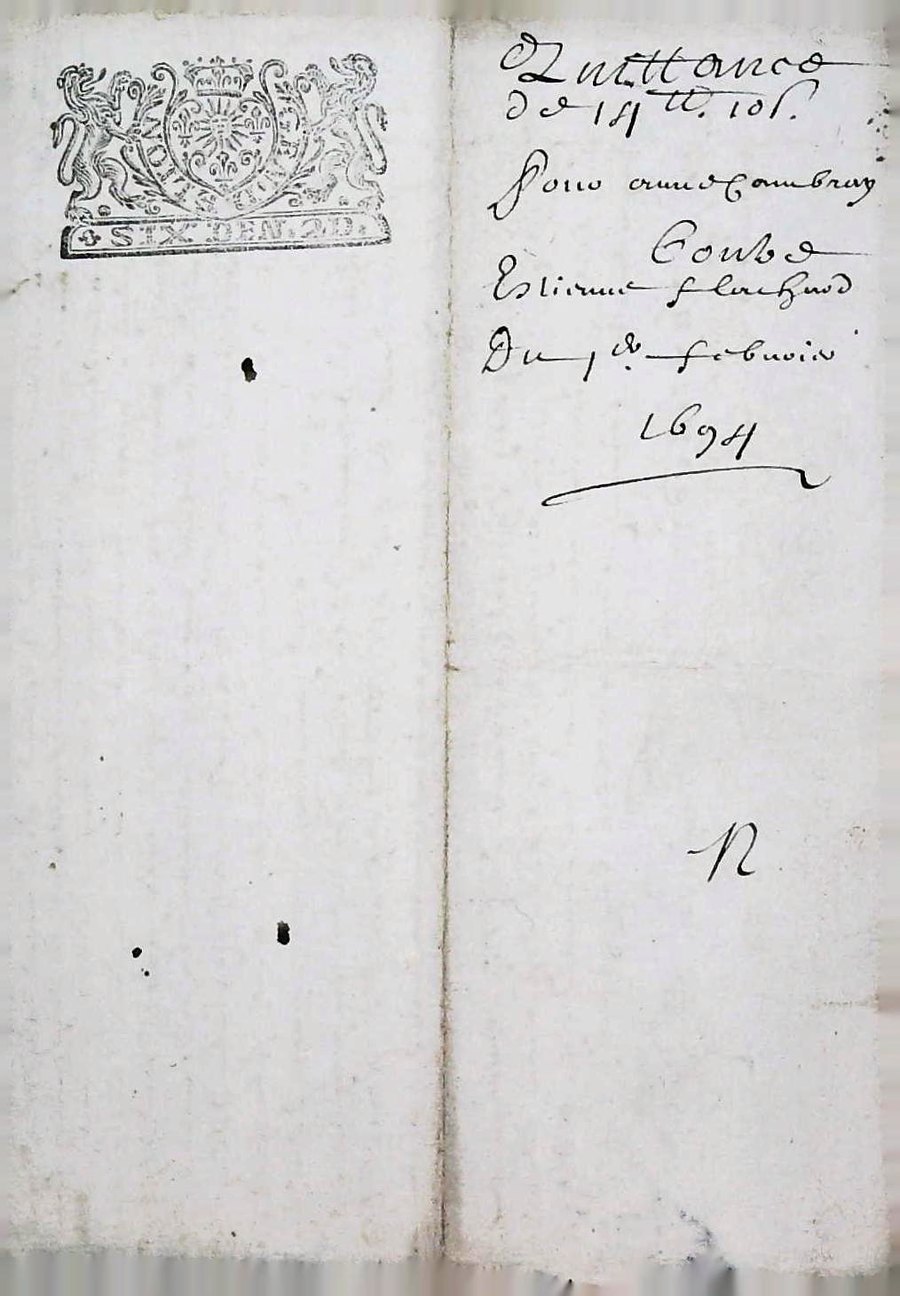 GENER LYON
SIX DEN. 2D.
Quittance
de 14 ₶. 10 s.
Pour anne Cambray
Contre
Estienne flachard
Du 1er febvrier
1694